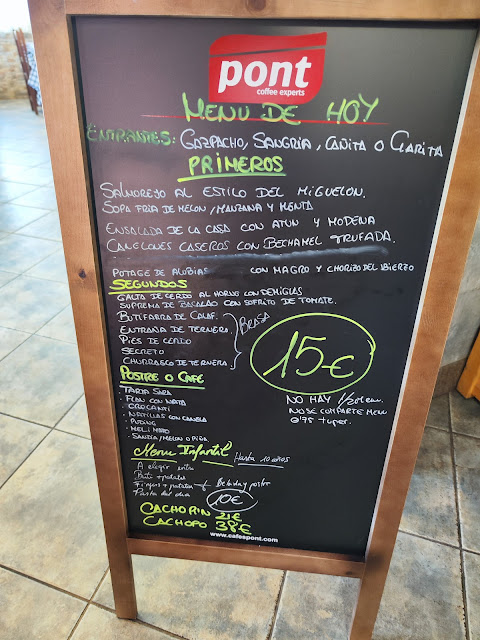 pont
coffee experts
MENU DE HOY
ENTRANTES: GAZPACHO, SANGRIA, CAÑITA O CLARITA
PRIMEROS
SALMOREJO AL ESTILO DEL MIGUELON.
SOPA FRIA DE MELON, MANZANA Y MENTA
ENSALADA DE LA CASA CON ATUN Y MODENA
CANELONES CASEROS CON BECHAMEL TRUFADA.
POTAGE DE ALUBIAS CON MAGRO Y CHORIZO DEL BIERZO
SEGUNDOS
GALTA DE CERDO AL HORNO CON DEMIGLAS
SUPREMA DE BACALAO CON SOFRITO DE TOMATE.
BUTIFARRA DE CALAF.
ENTRAÑA DE TERNERA
PIES DE CERDO
SECRETO
CHURRASCO DE TERNERA
BRASA
15€
NO HAY 1/2
NO SE COMPARTE MENU
0'75 tuper.
POSTRE O CAFÉ
TARTA SARA
· FLAN CON NATA
· CROCANTI
· NATILLAS CON CANELA
· PUDING
· MEL I MATO
· SANDIA/MELON O PIÑA
Menu Infantil Hasta 10 años
A elegir entre
+ patatas
+ patatas + Bebida y postre
Pasta del dia
10€
CACHORIN 21€
CACHOPO 38€
www.cafespont.com